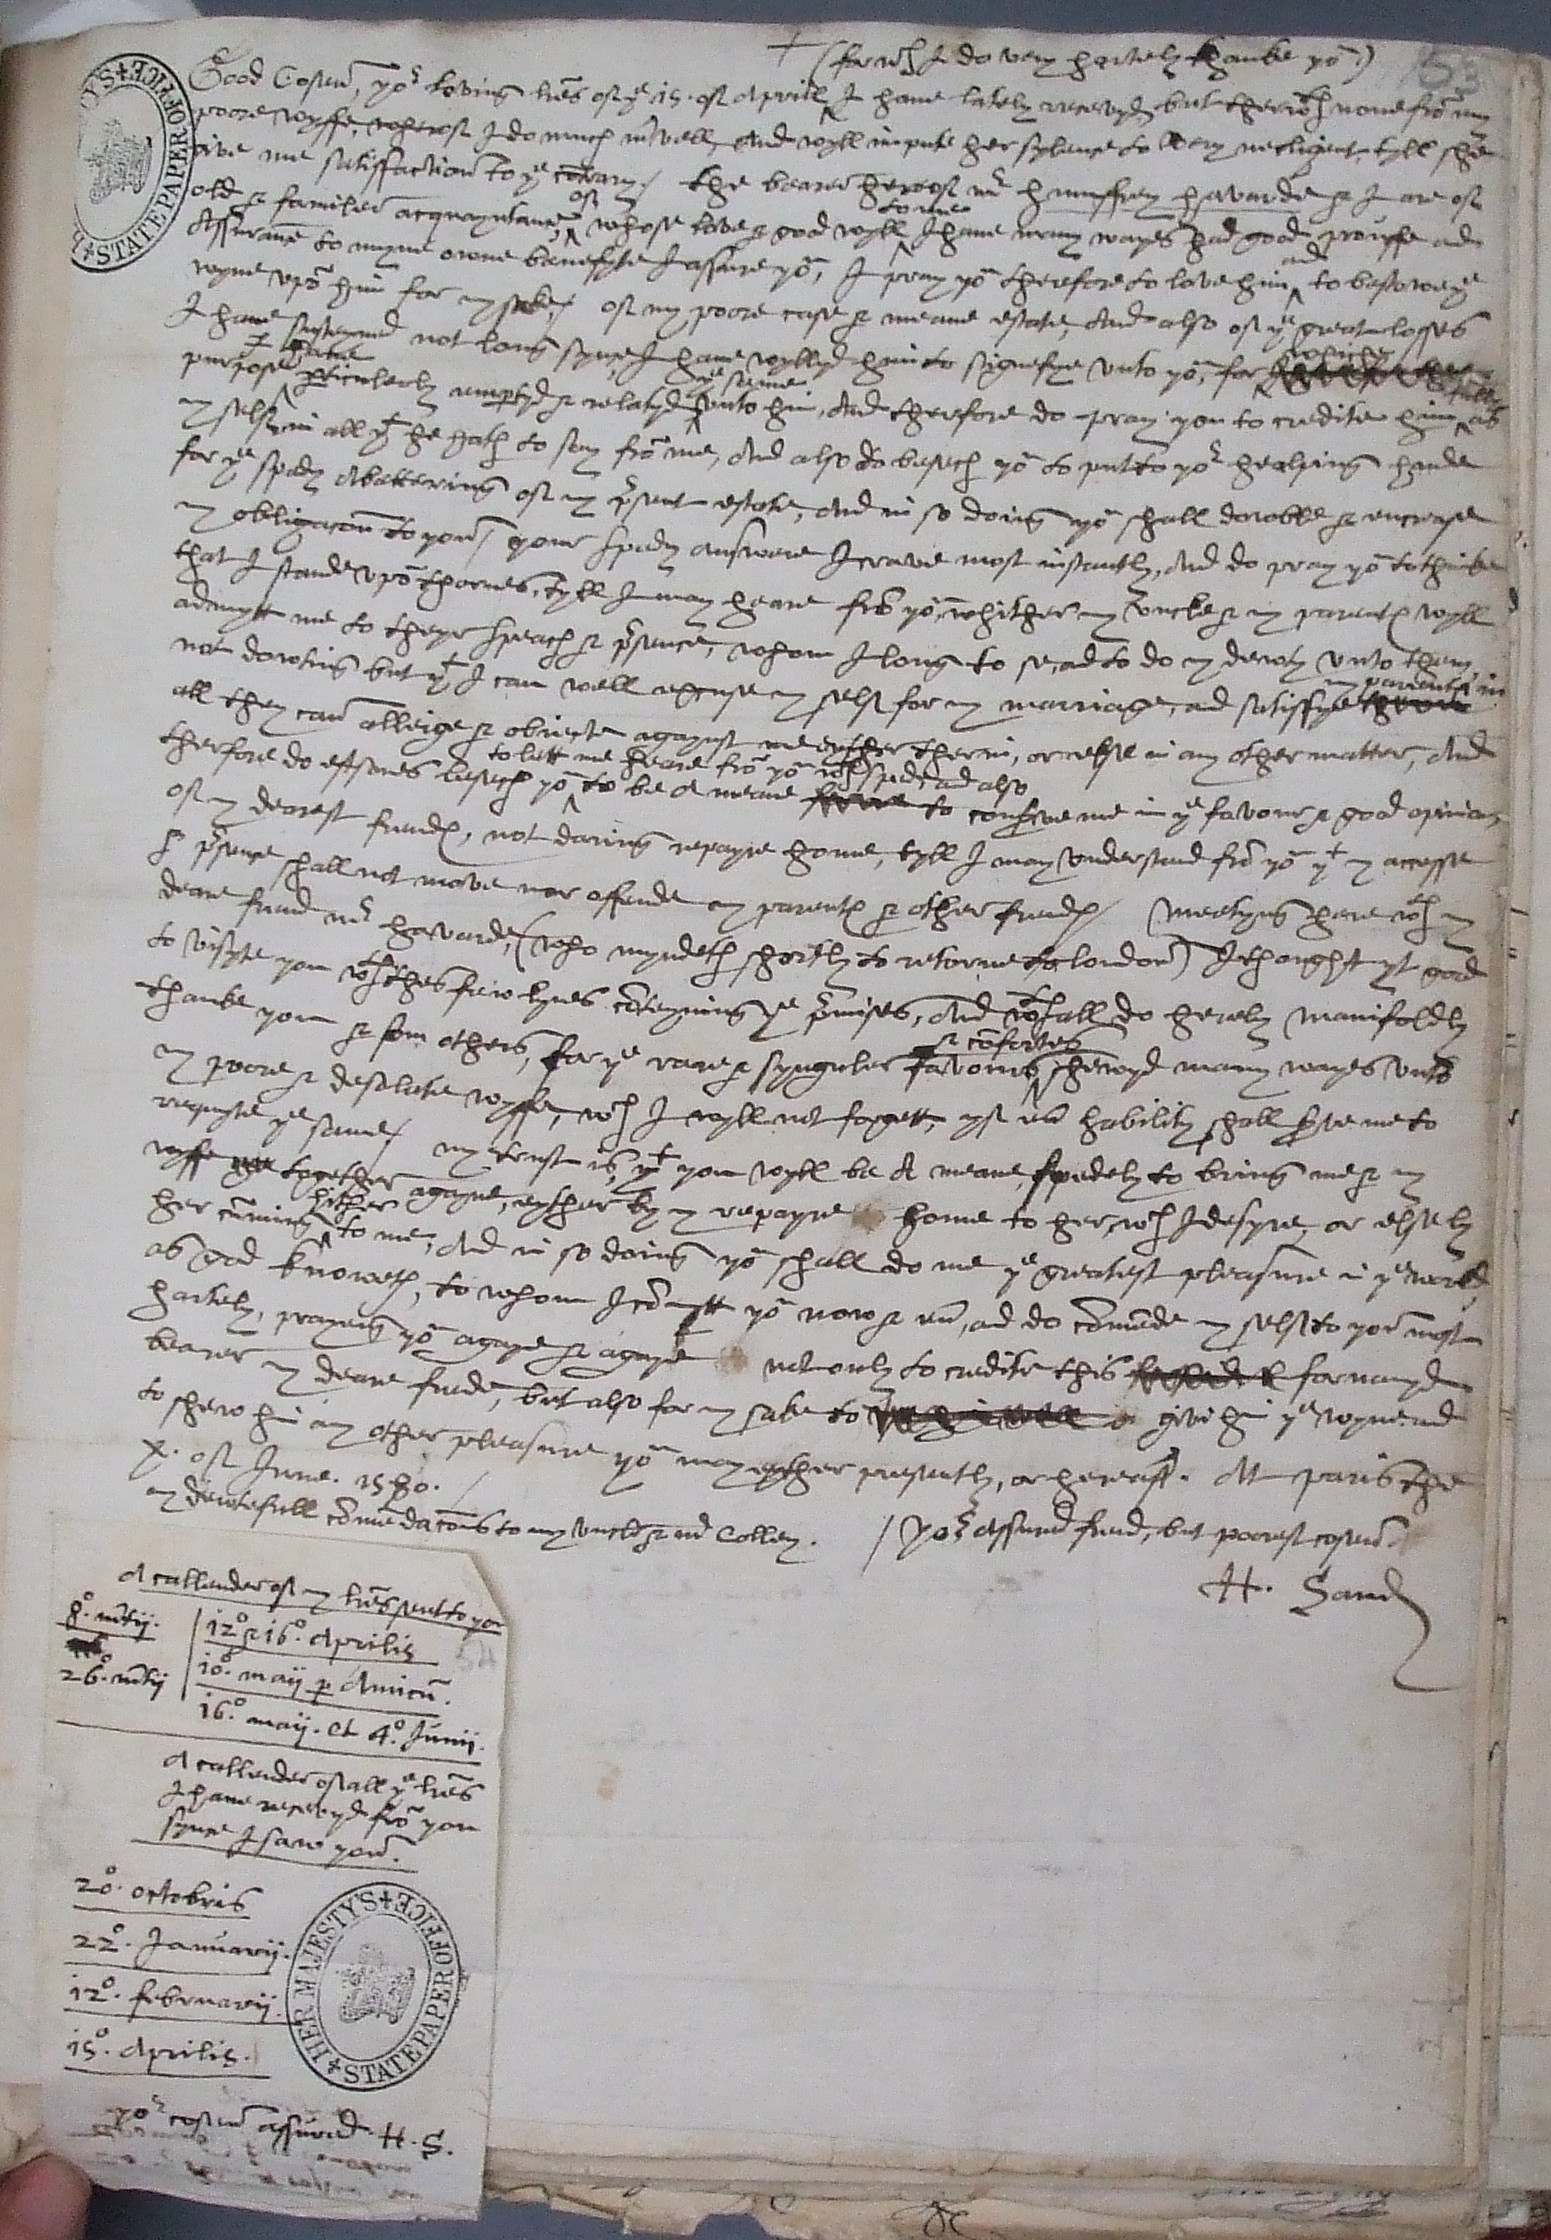 + (for wch I do very hartely thanke yo)
53
Good Cosen, yor loving lres of ye 15. of Aprill I have lately receivyd, but therwth none fro my
poore wyffe, wherof I do much mrvell, And wyll impute her sylence to be very necligent, tyll she
give me satisfaction to ye contrary / the bearer herof mr humffrey havarde & I are of
old & familier acquayntance, of whose love & good wyll to me I have many wayes had good prouffe and
Assurance to myne owne benefyte I assure yo, I pray yo therefore to love him, and to bestowe ye
wyne upo him for my sake / of my poore case & meane estate, And also of ye great losses
I have susteyned not long synce, I have wyllyd him to signefye unto yo, for which
purpose I have pticulerly impartyd & relatyd ye same unto him, And therefore do pray you to credite him as fully as
my self, in all yt he hath to say fro me, And also do besech yo to put to yor healping hande
for ye spedy abettering of my psent estate, and in so doing yo shall dowble & encrease
my obligacon to you / your spedy answere I crave most instantly, And do pray yo to thinke
that I stande upo thornes, tyll I may heare fro yo, whither my uncle & my parentes wyll
admytt me to theyr speach & psence, whom I long to se, and to do my dewty unto them
not dowting but yt I can well excuse my self for my marriage, and satisfye my parents in
all they can alleige & obiecte agaynst me eyther therin, or else in any other matter, And
therfore do eftsones besech yo to lett me heare fro yo wth spede, and also to be a meane to conserve me in ye favour & good opinion
of my dearest frendes, not daring repayre home, tyll I may understand fro yo yt my accesse
& psence shall not move nor offende my parentes & other frendes / Meetyng here wth my
deare frend mr havarde, (who myndeth shortly to retorne to london) I thought yt good
to visyte you wth thes few lynes conteyning ye pmises, And wthall do hereby manifoldly
thanke you & som others, for ye rare & synguler favours & confortes shewyd many wayes unto
my poore & desolate wyffe, wch I wyll not forgett, yf ever hability shall serve me to
requyte ye same / my trust is yt you wyll be a meane, spedely to bring me & my
wyffe together agayne, eyther by my repayre home to her, wch I desyre, or else by
her cuming hither to me, And in so doing yo shall do me ye greatest pleasure in ye world
as god knoweth, to whom I comytt yo now & ever, and do comende my self to you most
hartely, praying yo agayne & agayne not only to credite this fornamyd
bearer my deare frende, but also for my sake to give him ye wyne, and
to shew him any other pleasure yo may eyther presently, or hereafter. At paris the
x. of June. 1580. /
my dewtefull comendacons to my uncle & mr Colley. / Yor Assured frend, but poorest cosen
H. Sand
A callender of my lres sent to you
8o. mtij. | 12o & 16o. Aprilis
26o. mtij | 10o. maij p Amicu.
16o. maij. et 4o. Junij.
54
A callender of all ye lres
I have receivyd fro you
synce I saw you.
20. octobris
22o. Januarij.
12o. februarij.
15o. Aprilis.
yor cosen assured. H. S.
HER MAJESTY'S STATE PAPER OFFICE
STATE PAPER OFFICE